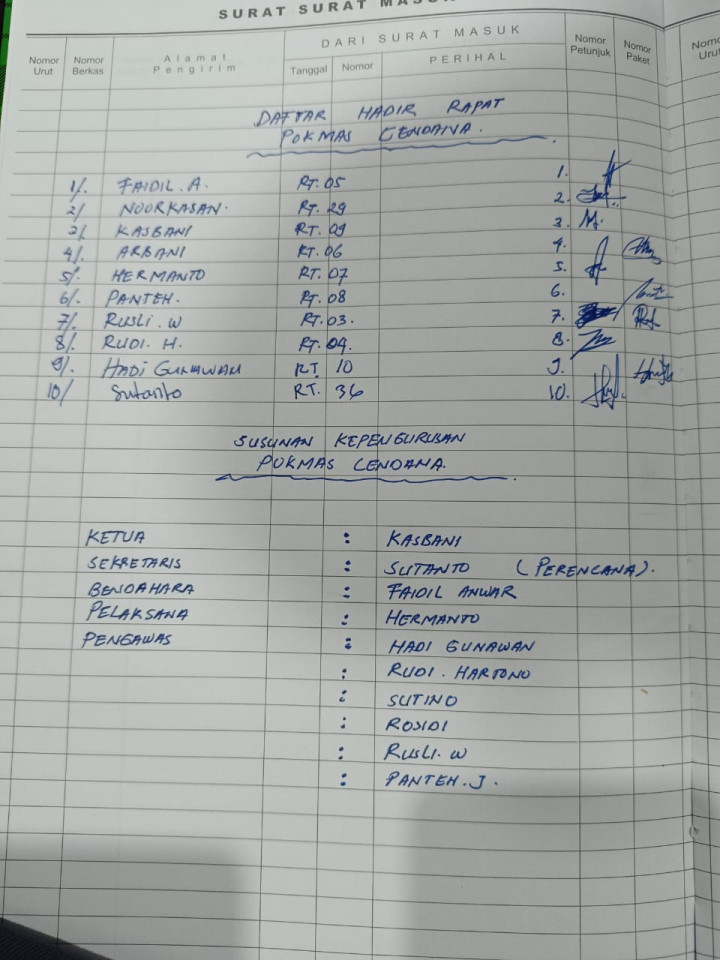 SURAT SURAT MASUK
Nomor Urut Nomor Berkas Alamat Pengirim DARI SURAT MASUK Nomor Petunjuk Nomor Paket Nomor Urut
Tanggal Nomor PERIHAL
DAFTAR HADIR RAPAT
POKMAS CENDANA.
1/. FAIDIL. A. RT. 05 1.
2/ NOORKASAN. RT. 29 2.
3/ KASBANI RT. 09 3.
4/. ARBANI RT. 06 4.
5/. HERMANTO RT. 07 5.
6/. PANTEH. RT. 08 6.
7/. RUSLI. W RT. 03. 7.
8/. RUDI. H. RT. 04. 8.
9/. HADI GUNAWAN RT. 10 9.
10/ Sutanto RT. 36 10.
SUSUNAN KEPENGURUSAN
POKMAS CENDANA.
KETUA : KASBANI
SEKRETARIS : SUTANTO (PERENCANA).
BENDAHARA : FAIDIL ANWAR
PELAKSANA : HERMANTO
PENGAWAS : HADI GUNAWAN
: RUDI. HARTONO
: SUTINO
: ROSIDI
: RUSLI. W
: PANTEH. J.